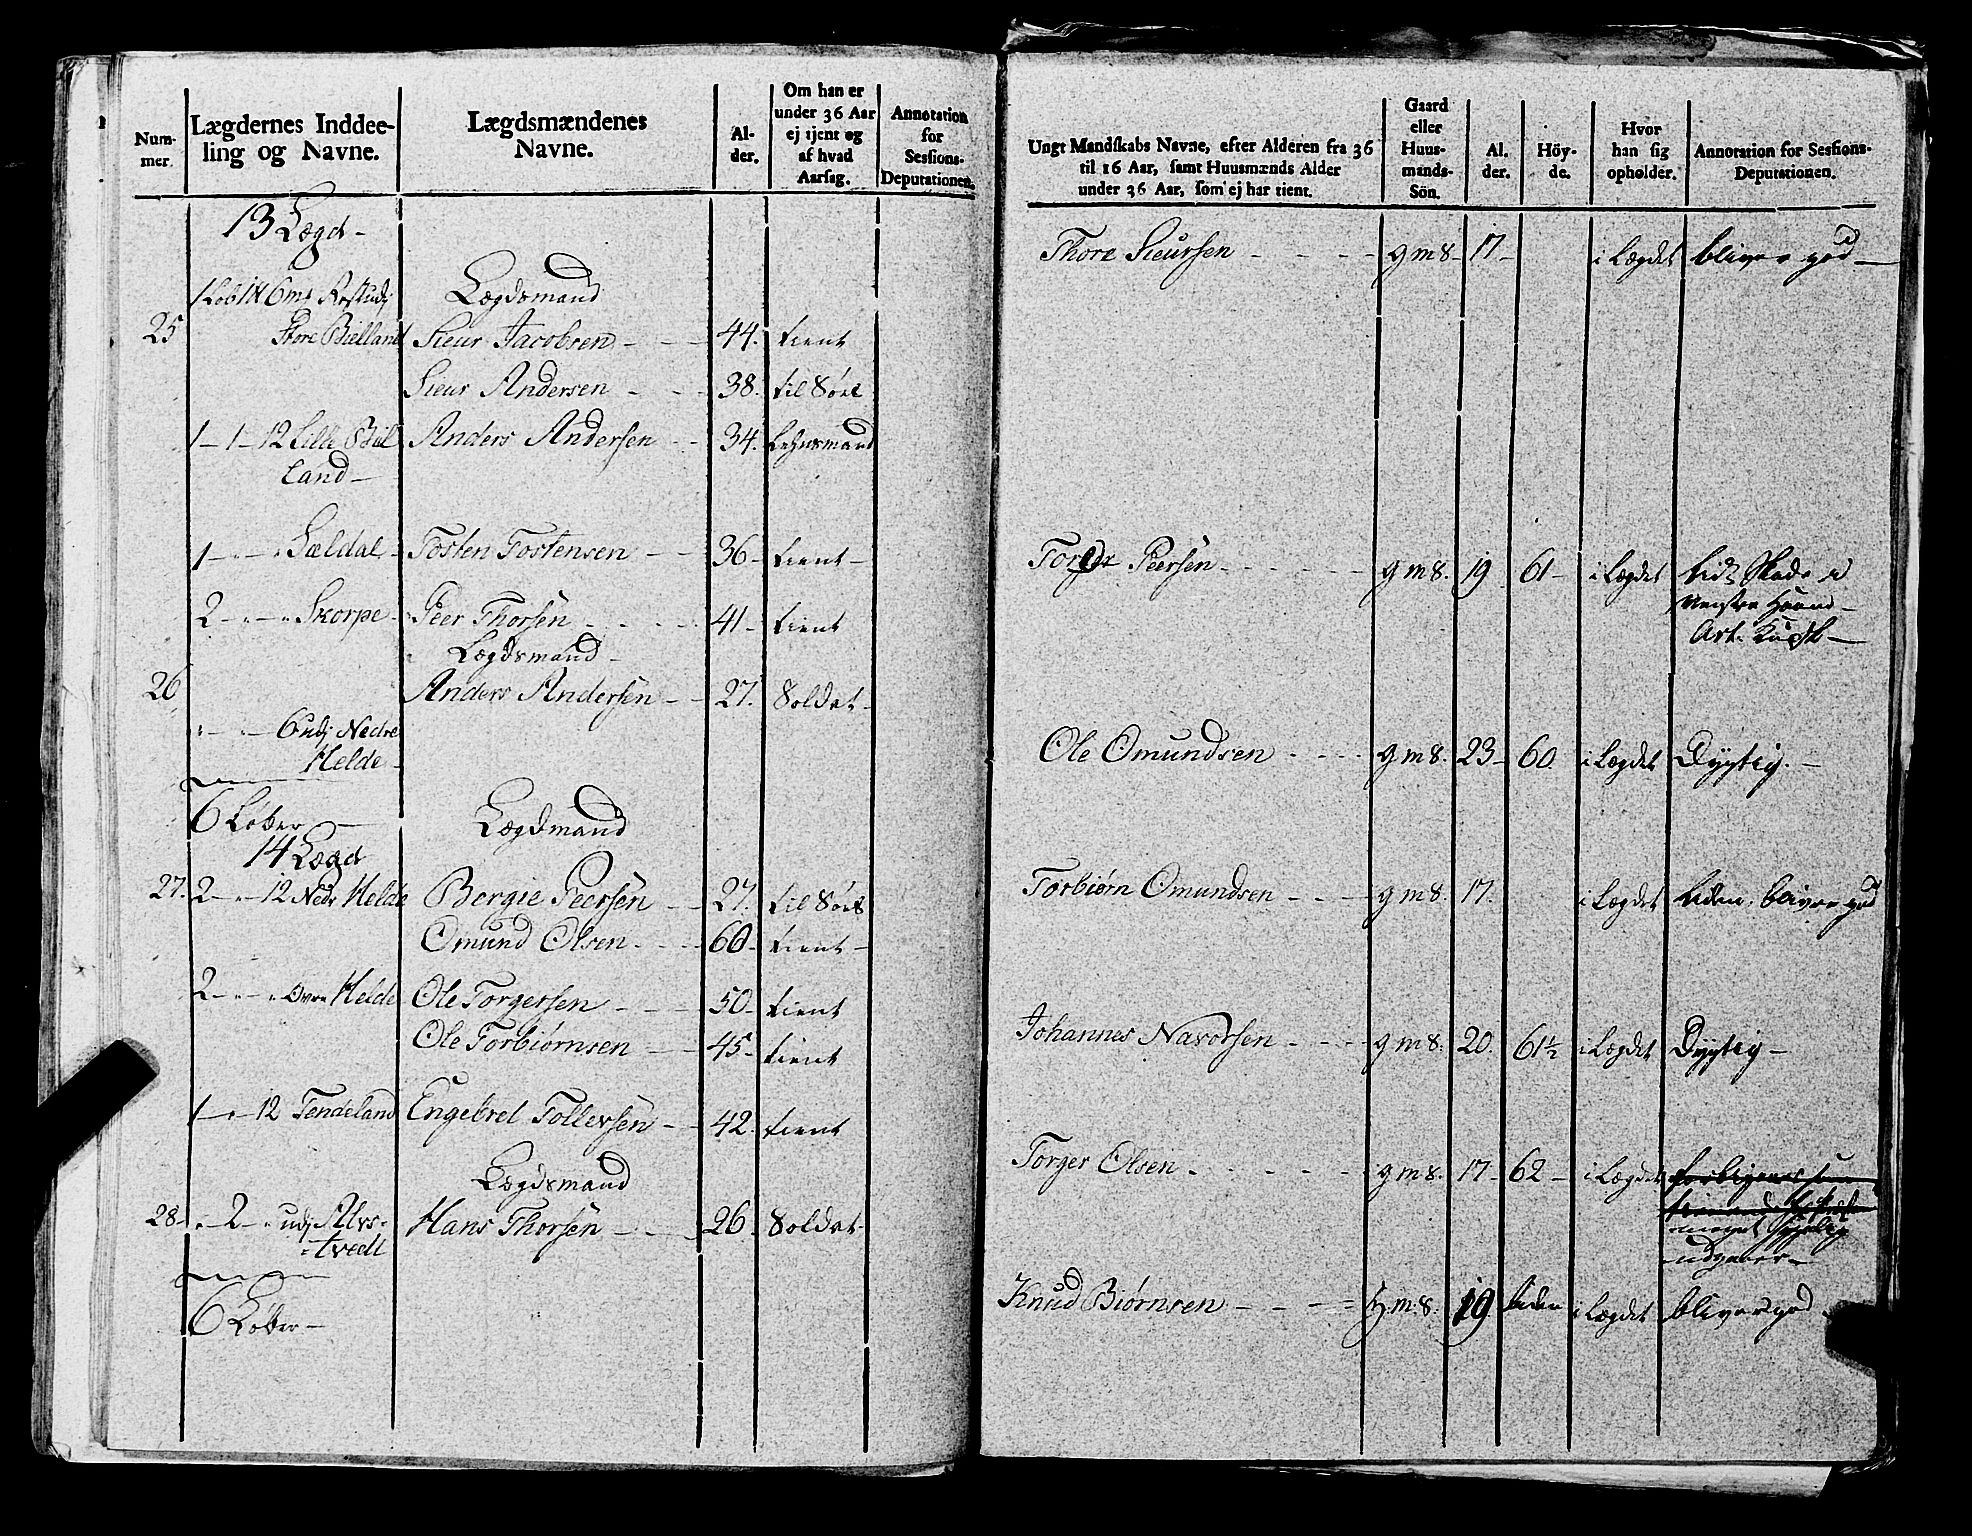 Num-
mer.
Lægdernes Inddee-
ling og Navne.
Lægdsmændenes
Navne.
Al-
der.
Om han er
under 36 Aar
ej tjent og
af hvad
Aarsag.
Annotation
for
Sessions-
Deputationen.
13 Lægd-
Lægdsmand
25 Store Bielland Sieur Jacobsen - - 44. tient
Sieur Andersen - - 38. til Søes
1-1-12 Lille Biel Anders Andersen - - 34. Lehnsmand
land-
1-"-" Sældal- Tosten Tostensen - - 36- tient-
2-"-" Skorpe- Peer Thorsen - - - 41- tient
Lægdsmand-
26 Anders Andersen - - 27. Soldat-
"-"- 6 udj Nedre
Helde-
6 Løber
Lægdmand
14 Lægd
27. 2-"-12 Nedr Helde Borgie Peersen - - 27. til Søes
Omund Olsen - - 60- tient-
2-"-" Øvre Helde Ole Torgersen - - 50- tient
Ole Torbiørnsen - 45- tient
1-"-12 Tendeland Engebret Tollevsen - - 42. tient
Lægdsmand
28- "-2-" udj Alvs- Hans Thorsen - - 26. Soldat-
tvedt
6 Løber-
Ungt Mandskabs Navne, efter Alderen fra 36
til 16 Aar, samt Huusmænds Alder
under 36 Aar, som ej har tient.
Gaard
eller
Huus-
mands-
Sön.
Al.
der.
Höy-
de.
Hvor
han sig
opholder.
Annotation for Sessions-
Deputationen.
Thore Sieursen - - - - g m s- 17- i Lægdet bliver god-
Peersen - - - - g m s. 19 61- i Lægdet
Venstre Haand-
Ole Omundsen - - - - g m s. 23- 60. i Lægdet Dygtig.-
Torbiørn Omundsen - - - g m s. 17. i Lægdet liden, bliver god
Johannes Navorsen - - - g m s. 20. 61½ i Lægdet Dygtig-
Torger Olsen - - - - - g m s. 17- 62- i Lægdet
meget
udgaver-
Knud Biørnsen - - - = h.m.s. 19 liden i Lægdet bliver god